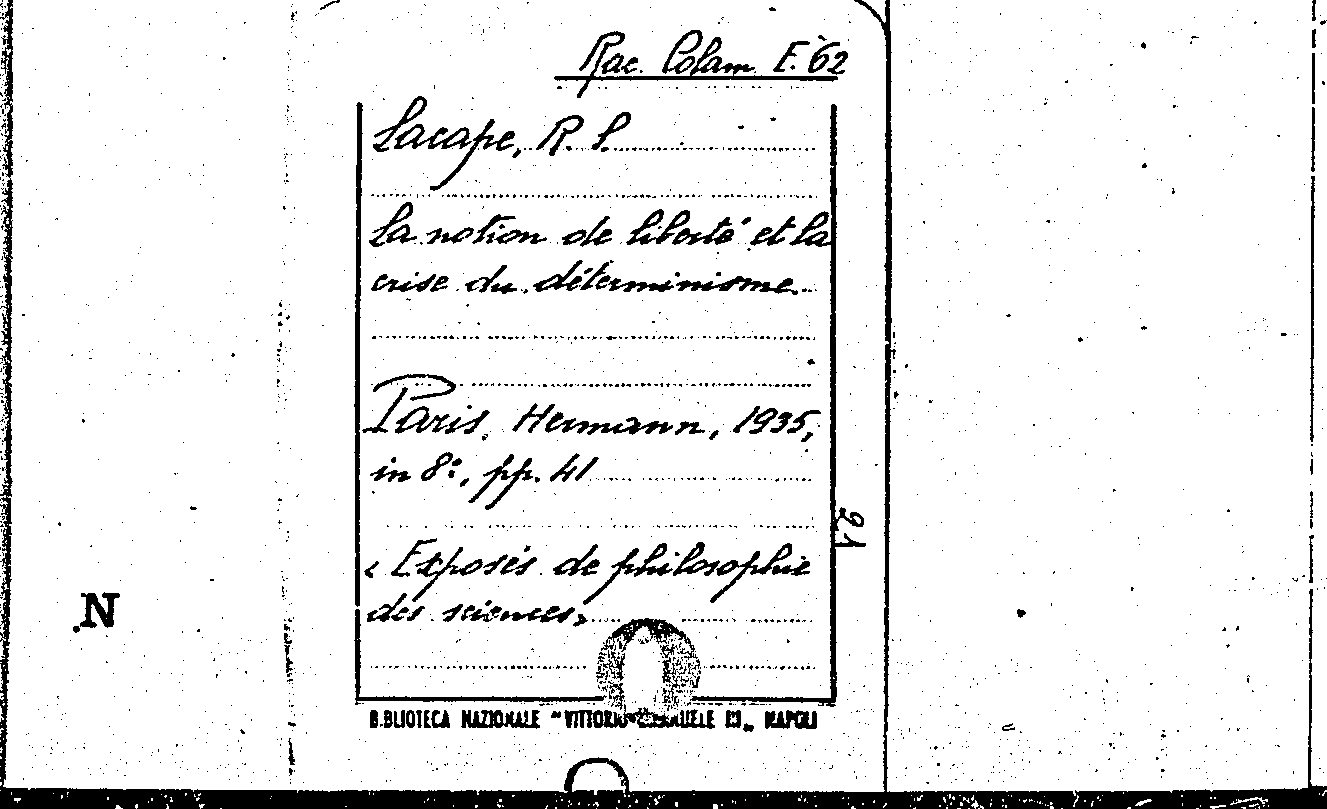 Rac. Colam E. 62
Lacape, R. S.
La notion de liberté et la
crise du déterminisme.
Paris, Hermann, 1935,
in 8º, pp. 41
21
« Exposés de philosophie
des sciences»
N
BIBLIOTECA NAZIONALE "VITTORIO EMANUELE III„ NAPOLI